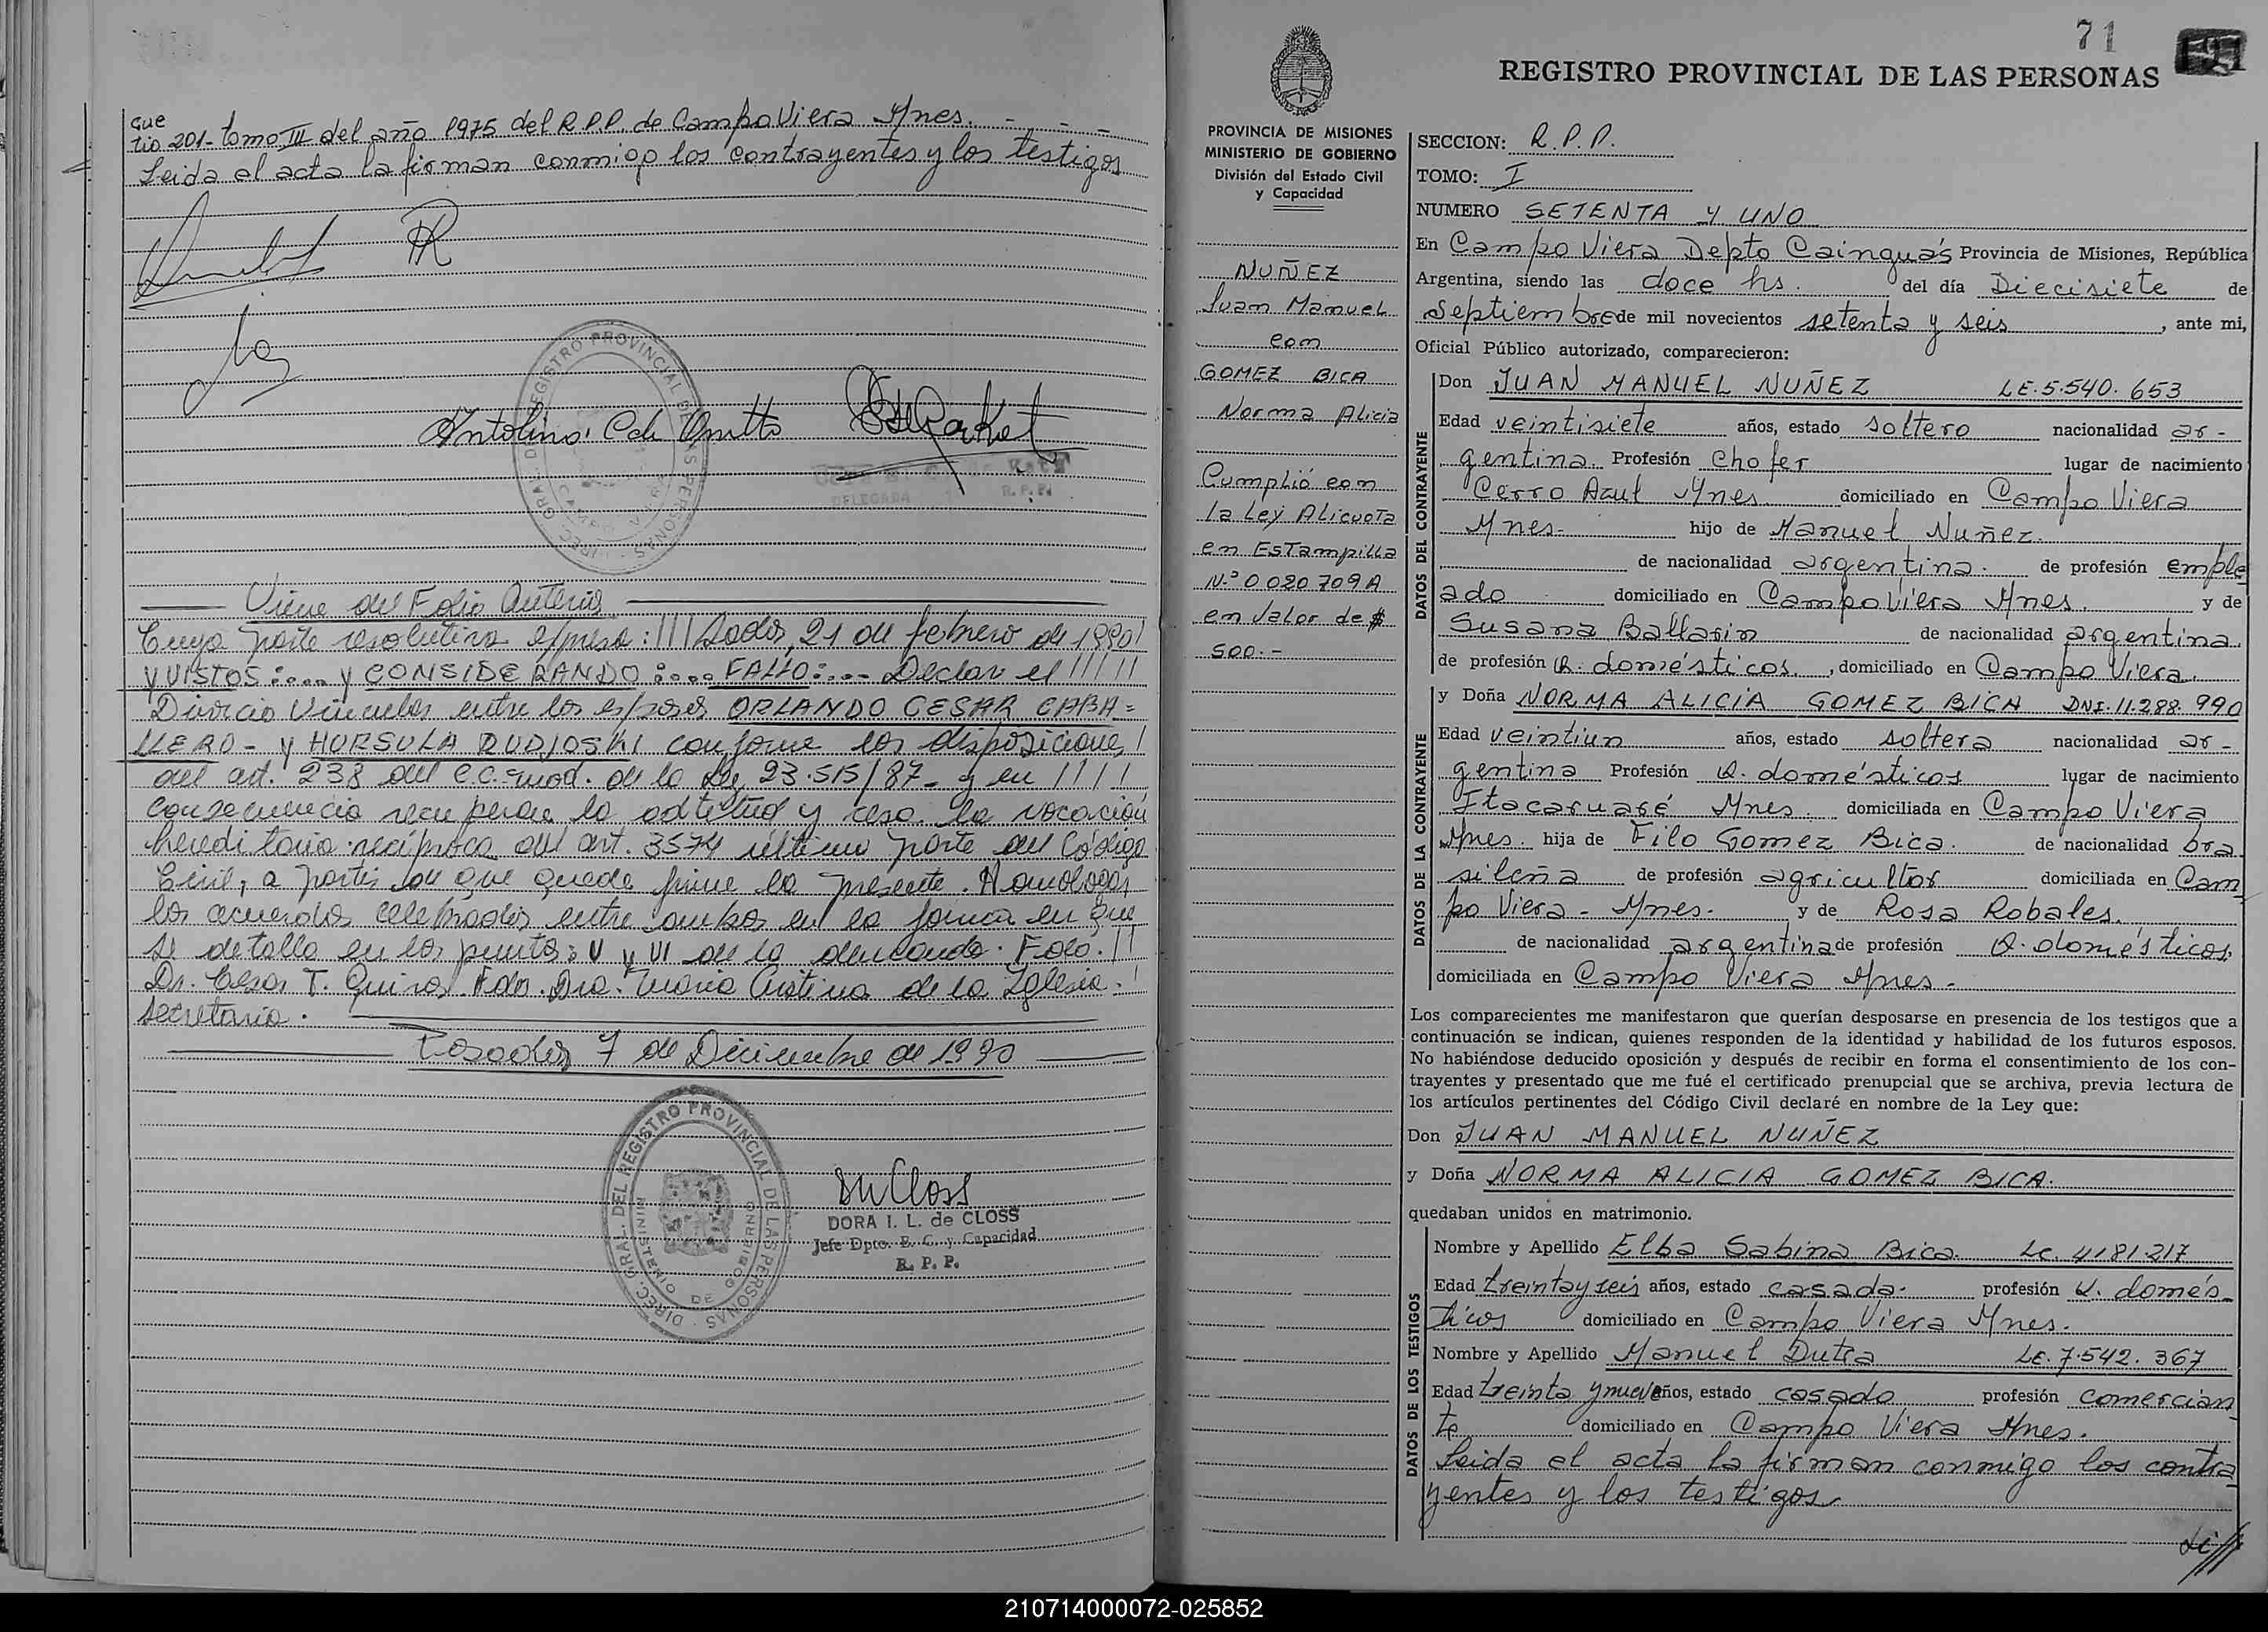 que
tio 201- tomo III del año 1975 del R.P.P. de Campo Viera Mnes. - - -
Leida el acta la firman conmigo los contrayentes y los testigos
DIREC. GRAL. DEL REGISTRO PROVINCIAL DE LAS PERSONAS
CAMPO VIERA
DELEGADA R.P.P.
Viene del Folio Anterior
Cuya parte resolutiva expresa: /// Posadas, 21 de febrero de 1990/
Y VISTOS:.... y CONSIDERANDO:.... FALLO:.... Declarar el /////
Divorcio Vincular entre los esposos ORLANDO CESAR CABA=
LLERO - y HURSULA DUDJOSKI conforme las disposiciones /
del art. 238 del C.C. mod. de la Ley 23.515/87- y en ////
consecuencia recuperan la aptitud y cesa la vocación
hereditaria recíproca del art. 3574 última parte del Código
Civil, a partir de que quede firme la presente. Homologar
los acuerdos celebrados entre ambos en la forma en que
se detalla en los puntos V y VI de la demanda. Fdo. //
Dr. Cesar T. Quiros Fdo. Dra. Maria Cristina de la Iglesia. /
Secretaria.
Posadas, 7 de Diciembre de 1990
DIREC. GRAL. DEL REGISTRO PROVINCIAL DE LAS PERSONAS
MINISTERIO DE GOBIERNO
DORA I. L. de CLOSS
Jefe Dpto. E. C. y Capacidad
R. P. P.
71
REGISTRO PROVINCIAL DE LAS PERSONAS
PROVINCIA DE MISIONES
MINISTERIO DE GOBIERNO
División del Estado Civil
y Capacidad
NUÑEZ
Juan Manuel
con
GOMEZ BICA
Norma Alicia
Cumplió con
la Ley Alicuota
en Estampilla
N.º 0020709A
en Valor de $
500.-
SECCION: R.P.P.
TOMO: I
NUMERO SETENTA Y UNO
En Campo Viera Depto Cainguás Provincia de Misiones, República
Argentina, siendo las doce hs. del día Diecisiete de
Septiembre de mil novecientos setenta y seis, ante mi,
Oficial Público autorizado, comparecieron:
DATOS DEL CONTRAYENTE
Don JUAN MANUEL NUÑEZ LE. 5.540.653
Edad veintisiete años, estado soltero nacionalidad ar-
gentina. Profesión Chofer lugar de nacimiento
Cerro Azul Mnes domiciliado en Campo Viera
Mnes- hijo de Manuel Nuñez.
de nacionalidad argentina. de profesión emple
ado domiciliado en Campo Viera Mnes. y de
Susana Ballarin de nacionalidad argentina.
de profesión Q. domésticos., domiciliado en Campo Viera.
DATOS DE LA CONTRAYENTE
y Doña NORMA ALICIA GOMEZ BICA DNI. 11.288.990
Edad veintiun años, estado soltera nacionalidad ar-
gentina Profesión Q. domésticos lugar de nacimiento
Itacaruaré Mnes. domiciliada en Campo Viera
Mnes. hija de Filo Gomez Bica. de nacionalidad bra
sileña de profesión agricultor domiciliada en Cam
po Viera - Mnes. y de Rosa Robales.
de nacionalidad argentina de profesión Q. domésticos,
domiciliada en Campo Viera Mnes.
Los comparecientes me manifestaron que querían desposarse en presencia de los testigos que a
continuación se indican, quienes responden de la identidad y habilidad de los futuros esposos.
No habiéndose deducido oposición y después de recibir en forma el consentimiento de los con-
trayentes y presentado que me fué el certificado prenupcial que se archiva, previa lectura de
los artículos pertinentes del Código Civil declaré en nombre de la Ley que:
Don JUAN MANUEL NUÑEZ
y Doña NORMA ALICIA GOMEZ BICA.
quedaban unidos en matrimonio.
DATOS DE LOS TESTIGOS
Nombre y Apellido Elba Sabina Bica. Lc. 4181217
Edad treinta y seis años, estado casada. profesión Q. domés-
ticos domiciliado en Campo Viera Mnes.
Nombre y Apellido Manuel Dutra LE. 7.542.367
Edad treinta y nueve años, estado casado profesión comercian
te domiciliado en Campo Viera Mnes.
Leida el acta la firman conmigo los contra
yentes y los testigos
210714000072-025852